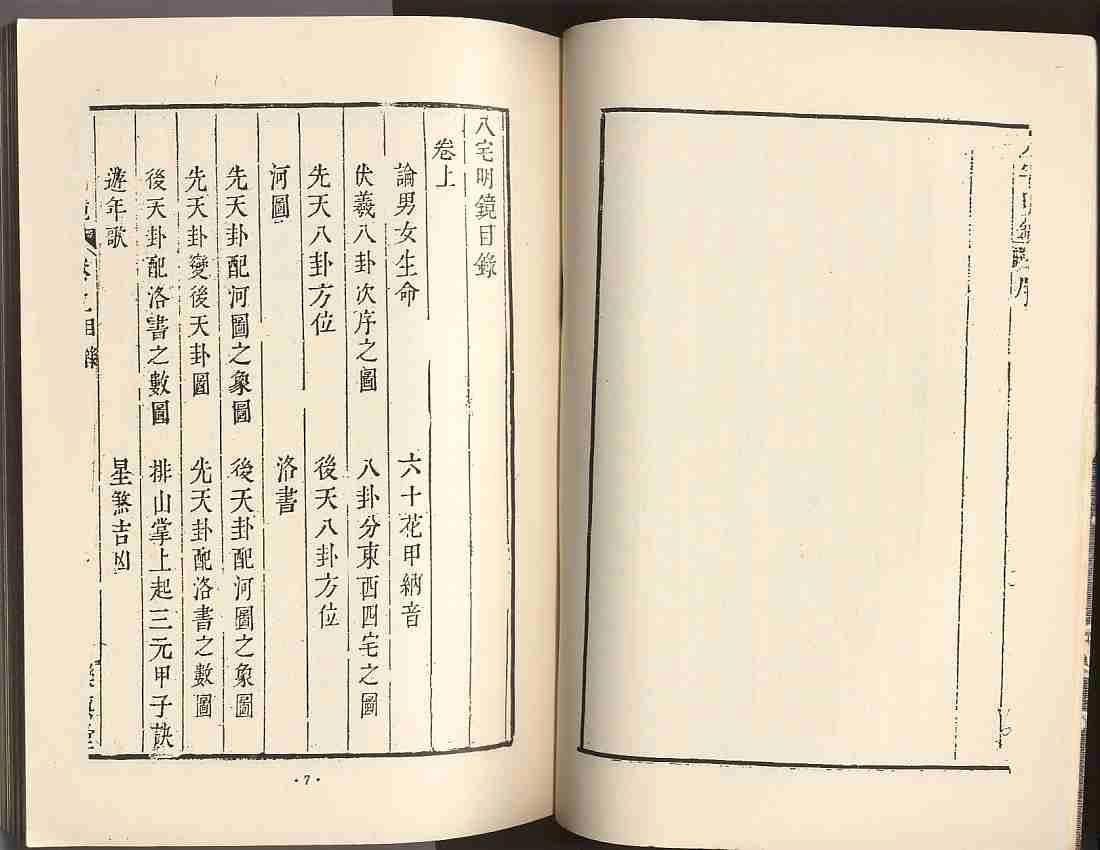 八宅明鏡目錄
卷上
論男女生命 六十花甲納音
伏羲八卦次序之圖 八卦分東西四宅之圖
先天八卦方位 後天八卦方位
河圖 洛書
先天卦配河圖之象圖 後天卦配河圖之象圖
先天卦變後天卦圖 先天卦配洛書之數圖
後天卦配洛書之數圖 排山掌上起三元甲子訣
遊年歌 星煞吉凶
·7·